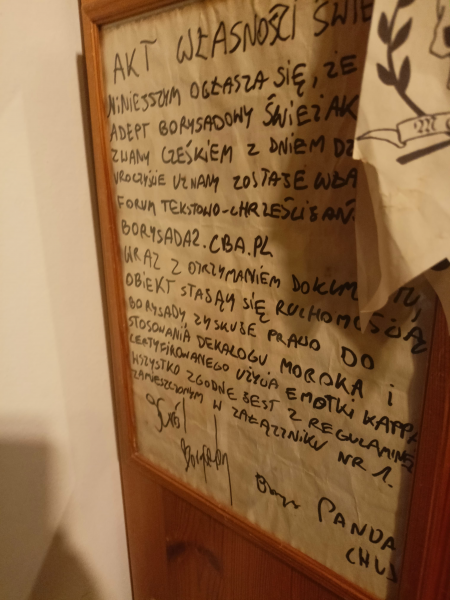 AKT WŁASNOŚCI ŚWIE
NINIEJSZYM OGŁASZA SIĘ, ŻE
ADEPT BORYSADOWY ŚWIEŻAK
ZWANY CZEŚKIEM Z DNIEM DZ
UROCZYŚCIE UZNANY ZOSTAJE WŁA
FORUM TEKSTOWO-CHRZEŚCIJAŃ
BORYSADAZ.CBA.PL
WRAZ Z OTRZYMANIEM DOKUM TU,
OBIEKT STAJĄCY SIĘ RUCHOMOŚCIĄ
BORYSADY, ZYSKUJE PRAWO DO
STOSOWANIA DEKALOGU MORDKA I
CERTYFIKOWANEGO UŻYCIA EMOTKI KAPPA
WSZYSTKO ZGODNE JEST Z REGULAMINEM
ZAMIESZCZONYM W ZAŁĄCZNIKU NR 1.
PANDA
CHUJ